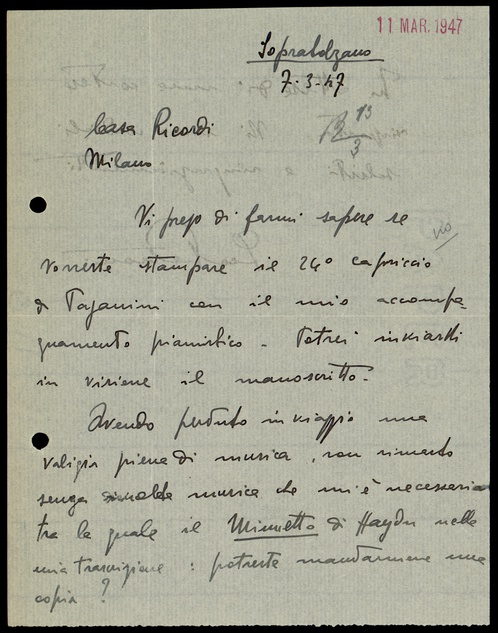 11 MAR. 1947
Soprabolzano
7-3-47
Casa Ricordi
Milano
13
3
Vi prego di farmi sapere se
no
vorreste stampare il 24º capriccio
di Paganini con il mio accompa-
gnamento pianistico - Potrei inviarvi
in visione il manoscritto -
Avendo perduto in viaggio una
valigia piena di musica, son rimasto
senza musica che mi è necessaria
tra la quale il Minuetto di Haydn nella
mia trascrizione : potreste mandarmene una
copia ?